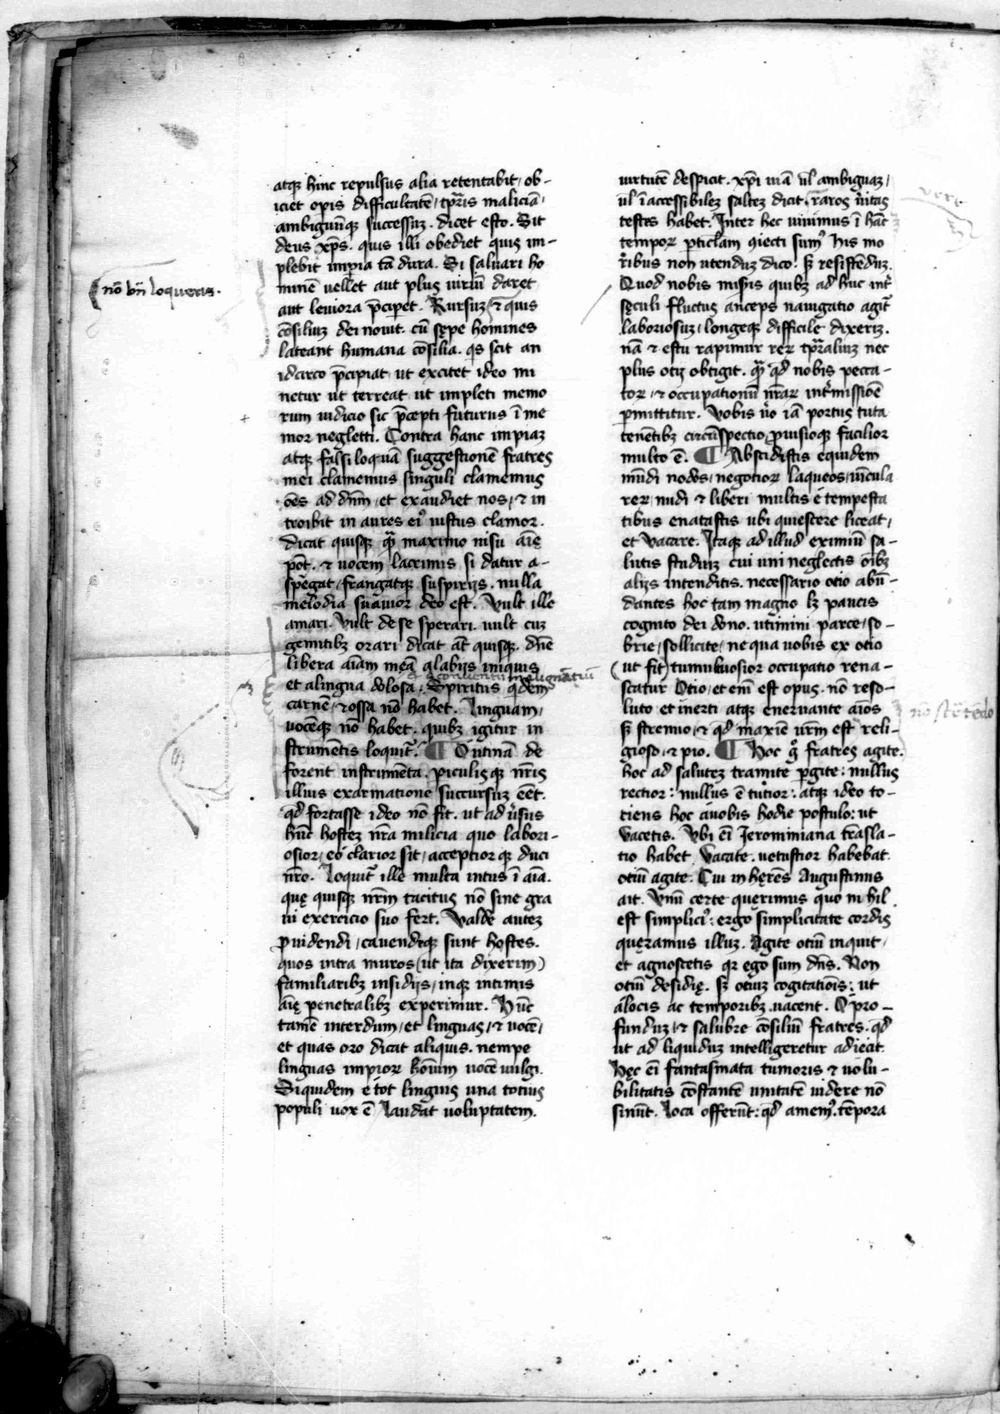 atqꝫ hinc repulsus alia retentabit / ob-
iciet opis difficultatē / tꝑris maliciā /
ambiguūqꝫ successuꝫ . dicet esto . Sit
deus xp̄s . quis illi obediet quis im-
plebit impia tā dura . Si saluari ho
minē uellet aut plus uiriū daret
aut leuiora p̄ciperet . Rursuꝫ / ⁊ quis
cōsiliuꝫ dei nouit . cū sępe homines
lateant humana cōsilia . qs scit an
idcirco p̄cipiat / ut excitet ideo mi
netur ut terreat . ut impleti memo
rum iudicio sic p̄cepti futurus ī me
mor neglecti . Contra hanc impiaꝫ
atqꝫ falsiloquā suggestionē fratres
mei clamemus singuli clamemus
oēs ad dn̄m / et exaudiet nos / ⁊ in
troibit in aures eiꝰ iustus clamor .
dicat quisqꝫ qͣ maximo nisu aīę
pōt . ⁊ uocem lacrimis si datur a-
spergat / frangatqꝫ suspirijs . nulla
melodia suauior deo est . Vult ille
amari . Vult de se sperari . uult cuꝫ
gemitibꝫ orari dicat āt quisqꝫ . dn̄e
libera aīam meā alabijs iniquis
et alingua dolosa . Spiritus qͥdem
carnē / ⁊ ossa nō habet . Linguam /
uocēqꝫ nō habet . quibꝫ igitur in
strumētis loquit᷑ . ¶ O utinā de
forent instrumēta . piculisqꝫ nr̄is
illius exarmatione succursuꝫ eēt .
qđ fortasse ideo nō fit . ut ad ůsus
hūc hostez nr̄a milicia quo labori-
osior / eō clarior sit / acceptiorqꝫ duci
nr̄o . Loquit᷑ ille multa intus ī aīa .
quę quisqꝫ nr̄m tacitus nō sine gra
ui exercicio suo fert . Valde autez
ꝓuidendi / cauendiqꝫ sunt hostes .
quos intra muros (ut ita dixerim)
familiaribꝫ insidijs / inqꝫ intimis
aīę penetralibꝫ experimur . Hūc
tamē interdum / et linguas / ⁊ uocē /
et quas oro dicat aliquis . nempe
linguas impioꝝ hoīum uocē uulgi .
Siquidem ē tot linguis una totius
populi uox ē Laudat uoluptatem .
nō bn̄ loqueris .
uirtutē despicit . xp̄i uiā ul ambiguaꝫ /
ul īaccessibilez saltez dicit . raros ůitas
testes habet . Inter hec uiuimus ī hāc
tempoꝝ pticlam ꝯiecti sumꝰ his mo
ribus non utenduꝫ dico . sꝫ resistēduꝫ .
Quod nobis miseris quibꝫ ad huc int̄
sęculi fluctus anceps nauigatio agit᷑
laboriosuꝫ / longeqꝫ difficile dixeriꝫ .
nā ⁊ estu rapimur reꝝ tꝑraliuꝫ nec
plus otij obtigit . qͣ qđ nobis pecca-
toꝝ / ⁊ occupationū nr̄aꝝ int̄missiōe
ꝑmittitur . Vobis ůo iā portus tuta
tenētibꝫ circūspectio / ꝓuisioqꝫ facilior
multo ē . ¶ Abscidistis equidem
mūdi nodos / negotioꝝ laqueos / uīcula
reꝝ / nudi ⁊ liberi multis ē tempesta
tibus enatastis ubi quiescere liceat /
et vacare . Itaqꝫ ad illud eximiū sa-
lutis studiuꝫ cui uni neglectis oībꝫ
alijs intenditis . necessario otio abū-
dantes hoc tam magno lꝫ paucis
cognito dei dono . utimini parce / so-
brie / sollicite / ne qua uobis ex otio
(ut fit) tumultuosior occupatio rena-
scatur Otio / et em̄ est opus . nō reso-
luto et inerti atqꝫ eneruante aīos
sꝫ strenuo / ⁊ qđ maxīe ur̄m est reli-
gioso / ⁊ pio . ¶ Hoc g̊ fratres agite .
hoc ad salutez tramite ꝑgite : nullus
rectior : nullus ē tutior : atqꝫ ideo to-
tiens hoc auobis hodie postulo : ut
vacetis . Vbi eī Jeronimiana trāsla-
tio habet vacate . uetustior habebat
otiū agite . Cui inhęrēs Augustinus
ait . Vnū certe querimus quo nihil
est simpliciꝰ : ergo simplicitate cordis
quęramus illuꝫ . Agite otiū inquit /
et agnoscetis qꝛ ego sum dn̄s . Non
otiū desidię . sꝫ otiuꝫ cogitatiois : ut
alocis ac temporibꝫ uacent . O pro-
funduꝫ / ⁊ salubre cōsiliū fratres . qđ
ut ad liquiduꝫ intelligeretur adiecit
Hęc eī fantasmata tumoris ⁊ uolu-
bilitatis cōstantē unitatē uidere nō
sinūt . Loca offerūt : qđ amemꝰ . tēpora